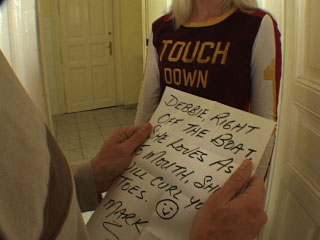 TOUCH
DOWN
DEBBIE, RIGHT
OFF THE BOAT,
SHE LOVES AS
MOUTH, SH
CURL YO
TOES. ☺
MARK